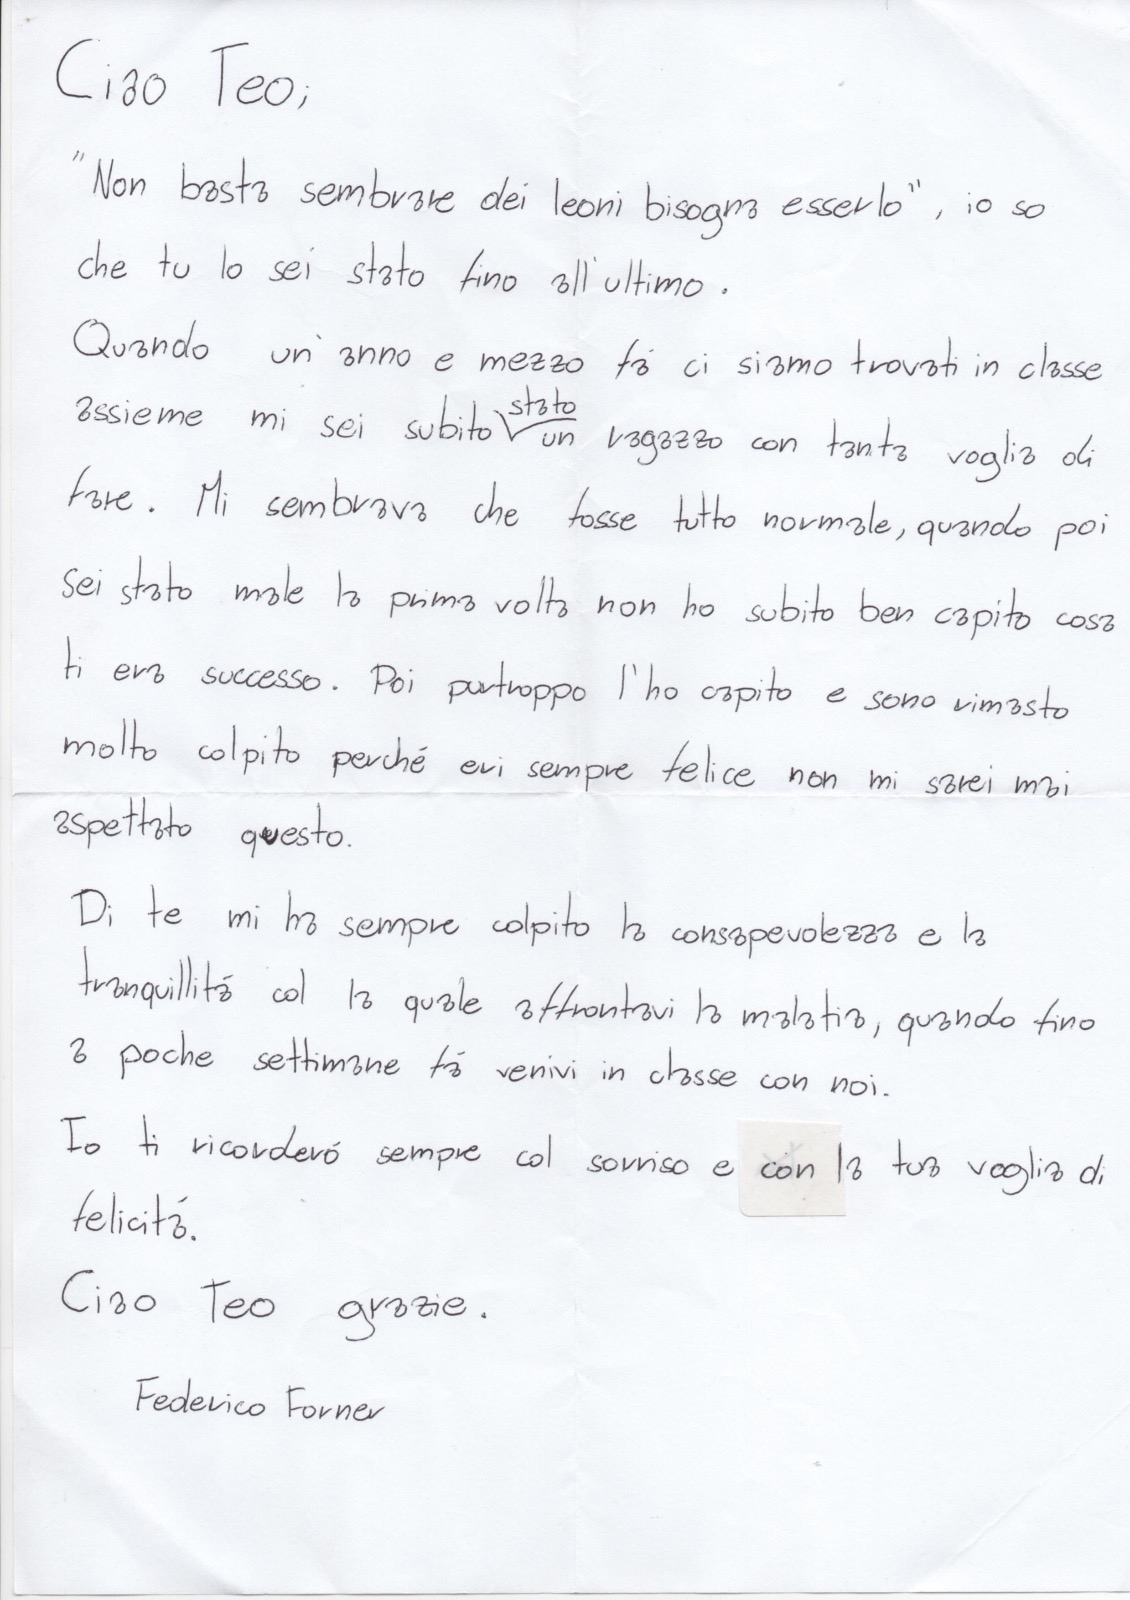 Ciao Teo;
"Non basta sembrare dei leoni bisogna esserlo", io so
che tu lo sei stato fino all'ultimo.
Quando un'anno e mezzo fá ci siamo trovati in classe
assieme mi sei subito stato un ragazzo con tanta voglia di
fare. Mi sembrava che fosse tutto normale, quando poi
sei stato male la prima volta non ho subito ben capito cosa
ti era successo. Poi purtroppo l'ho capito e sono rimasto
molto colpito perché eri sempre felice non mi sarei mai
aspettato questo.
Di te mi ha sempre colpito la consapevolezza e la
tranquillitá col la quale affrontavi la malatia, quando fino
a poche settimane fá venivi in classe con noi.
Io ti ricorderó sempre col sorriso e con la tua voglia di
felicitá.
Ciao Teo grazie.
Federico Forner